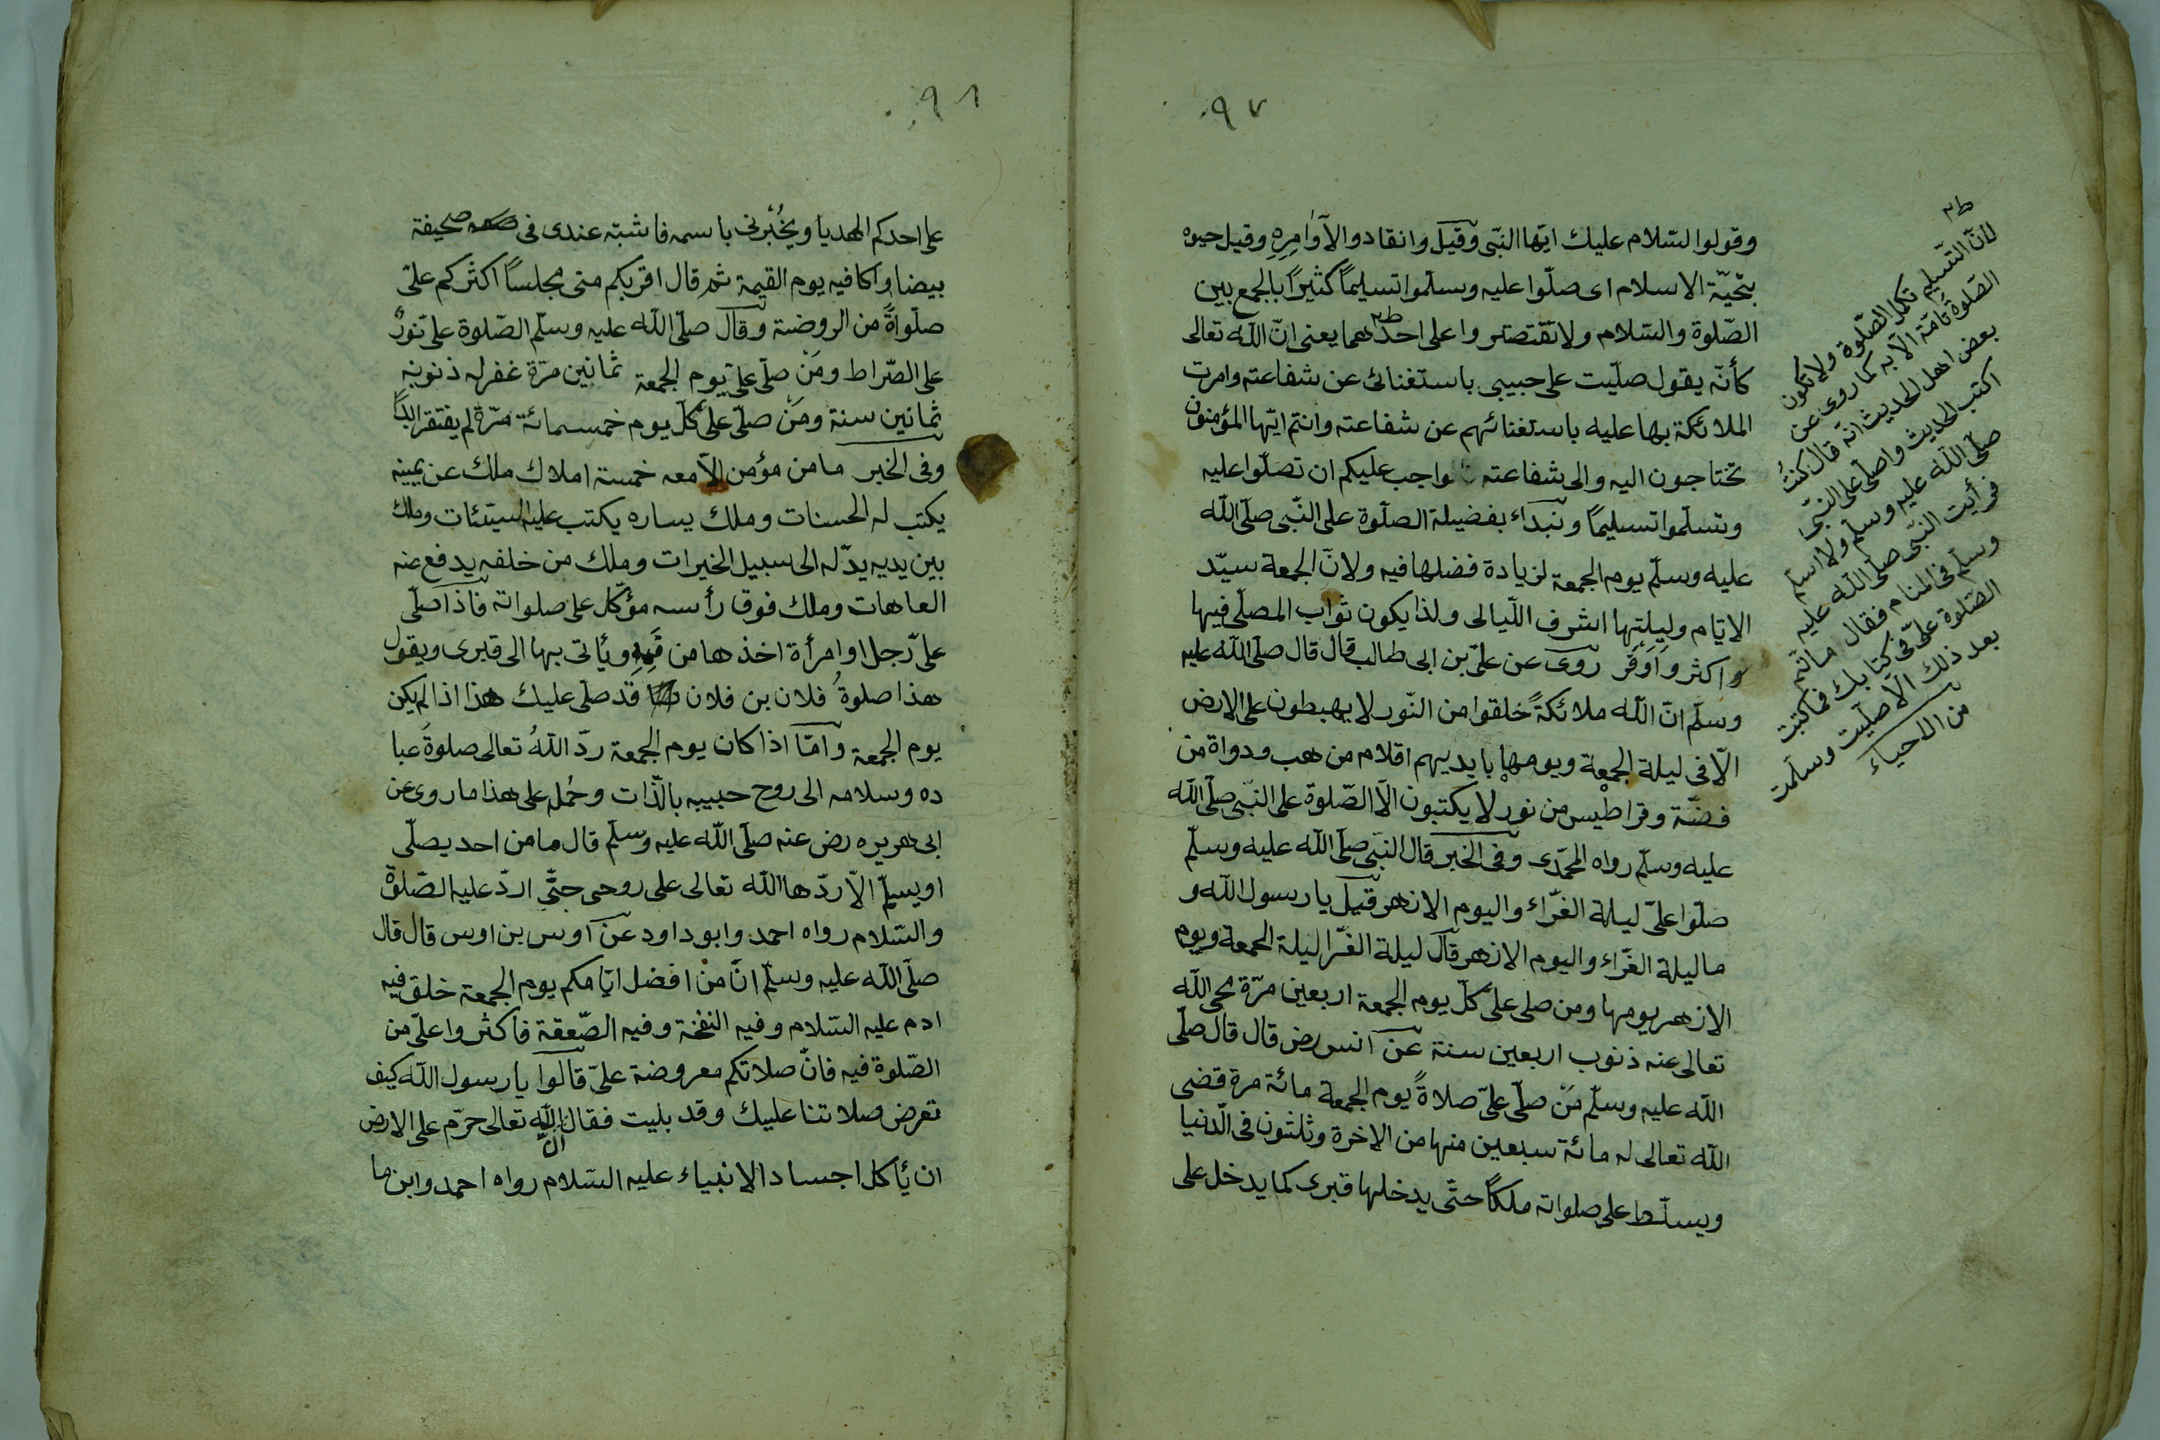 ٩٧
وقولوا السّلام عليك ايّها النّبى وقيل وانقادوا لآوامِرِهِ وقيل حيوه
بتحيّة الاسلام اى صلّوا عليه وسلّموا تسليمًا كثيرًا بالجمع بين
الصّلوة والسّلام ولا تقتصروا على احدهما يعنى انّ اللّه تعالى
كأنّه يقول صلّيت على حبيبى باستغنائى عن شفاعته وامرت
الملائكة بها عليه باستغنائهم عن شفاعته وانتم ايّها المؤمنون
تحتاجون اليه والى شفاعته واجب عليكم ان تصلّوا عليه
وتسلّموا تسليمًا ونبداء بفضيلة الصلّوة على النّبى صلّى اللّه
عليه وسلّم يوم الجمعة لزيادة فضلها فيه ولانّ الجمعة سيّد
الايّام وليلتها اشرف اللّيالى ولذا يكون ثواب المصلّى فيها
اكثر واَوفَر روى عن علىّ بن ابى طالب قال قال صلّى اللّه عليه
وسلّم انّ اللّه ملائكةً خلقوا من النّور لا يهبطون على الارض
الّا فى ليلة الجمعة ويومها بايديهم اقلام من هب ودواة من
فضّة وقراطيس من نور لا يكتبون الّا الصّلوة على النّبى صلّى اللّه
عليه وسلّم رواه المحمّدى وفى الخبر قال النّبى صلّى اللّه عليه وسلّم
صلّوا علىّ ليلة الغرّاء واليوم الازهر قيل يا رسول اللّه و
ما ليلة الغرّاء واليوم الازهر قال ليلة الغرّا ليلة الجمعة ويوم
الازهر يومها ومن صلى علىّ كلّ يوم الجمعة اربعين مرّة محى اللّه
تعالى عنه ذنوب اربعين سنة عن انس رض قال قال صلّى
اللّه عليه وسلّم مَنْ صلّى علىّ صلاةً يوم الجمعة مائة مرة قضى
اللّه تعالى له مائة سبعين منها من الاخرة وثلثون فى الّدنيا
ويسلّط على صلواته ملكًا حتّى يدخلها قبرى كما يدخل على
لانّ التّسليم تكمل الصّلوة ولا تكون
الصّلوة تامّة الّا به كما روى عن
بعض اهل الحديث انّه قال كنتُ
اكتب الحديث واصلّى على النّبى
صلّى اللّه عليه وسلّم ولا اسلّم
فرأيت النّبى صلّى اللّه عليه
وسلّم فى المنام فقال ما تتم
الصّلوة علىّ فى كتابك فما كتبت
بعد ذلك الّا صلّيت وسلّمت
من الاحياء
٩٨
على احدكم الهدايا ويُخْبَرنى باسمه فاشبته عندى فى صحيفة
بيضا واكافيه يوم القيمة ثمّ قال اقربكم منى مجلسًا اكثركم علىّ
صلواةً من الروضة وقال صلّى اللّه عليه وسلّم الصّلوة علىّ نورٌ
على الصّراط ومَنْ صلّى علىّ يوم الجمعة ثمانين مرّة غفر له ذنوبه
ثمانين سنة ومَنْ صلّى علىّ كلّ يوم خمسمائة مرّة لم يفتقر ابدًا
وفى الخبر ما من مؤمن الّا معه خمسة املاك ملك عن يمينه
يكتب له الحسنات وملك يساره يكتب عليه السيّئات وملك
بين يديه يدّله الى سبيل الخيرات وملك من خلفه يدفع عنه
العاهات وملك فوق رأسه مؤكّل على صلواته فاذا صلّى
علىّ رّجل او امرأة اخذها من فَمِهِ ويأتى بها الى قبرى ويقول
هذا صلوةُ فلان بن فلان قد صلّى عليك هذا اذا لم يكن
يوم الجمعة وامّا اذا كان يوم الجمعة ردّ اللّهُ تعالى صلوةَ عبا
ده وسلامه الى روح حبيبه بالذّات وحُمل على هذا ما روى عن
ابى هريره رض عنه صلّى اللّه عليه وسلّم قال ما من احد يصلّى
او يسلّم الّا ردّها اللّه تعالى على روحى حتّى اردّ عليه الصّلوة
والسّلام رواه احمد وابو داود عن اوس بن اوس قال قال
صلّى اللّه عليه وسلّم انّ من افضل ايّامكم يوم الجمعة خلق فيه
ادم عليه السّلام وفيه النفخة وفيه الصّعقة فاكثروا علىّ من
الصّلوة فيه فانّ صلاتكم معروضة علىّ قالوا يا رسول اللّه كيف
تعرض صلاتنا عليك وقد بليت فقال انّ اللّه تعالى حرّم على الارض
ان يأكل اجساد الانبياء عليه السّلام رواه احمد وابن ما